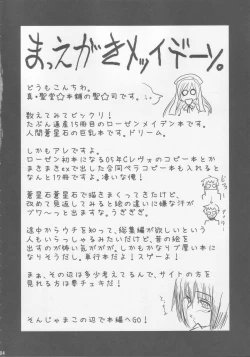 まえがきメイデーン。
どうもこんちわ。
真・聖堂☆本舗の聖☆司です。
数えてみてビックリ!
たぶん通算15冊目のローゼンメイデン本です。
人間蒼星石の巨乳本です。ドリーム。
しかもアレですよ。
ローゼン初本になる05年Cレヴォのコピー本とか
まきまきexで出した合同ペラコピー本も入れると
なんと17冊ですよ。凄いな俺!
蒼星石蒼星石で描きまくってきたけど、
改めて見返してみると絵の違いに嫌な汗が
ブワ〜っと出るなあ。うぎぎぎ。
途中からウチを知って、総集編が欲しいという
人もいらっしゃるみたいだけど、昔の絵を
出すのが嫌い気ががが。しかもかなりぶ厚い本に
なりそうだし。単行本だよ!スゲーよ!
まぁ、その辺は多少考えてるんで、サイトの方を
見れる方は要チェキだ!
そんじゃまこの辺で本編へGO!